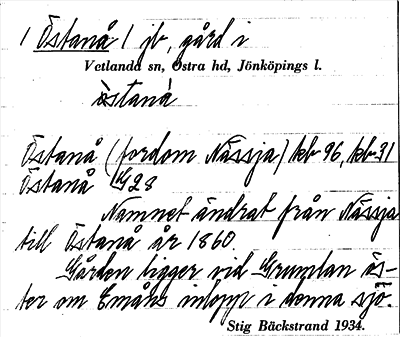 1 Östanå / jb, gård i
Vetlanda sn, Östra hd, Jönköpings l.
östanå
Östanå (fordom Nässja) kb 96, kb 31
Östanå G28
Namnet ändrat från Nässja
till Östanå år 1860.
Gården ligger vid Grumlan ös-
ter om Emåns inlopp i denna sjö.
Stig Bäckstrand 1934.